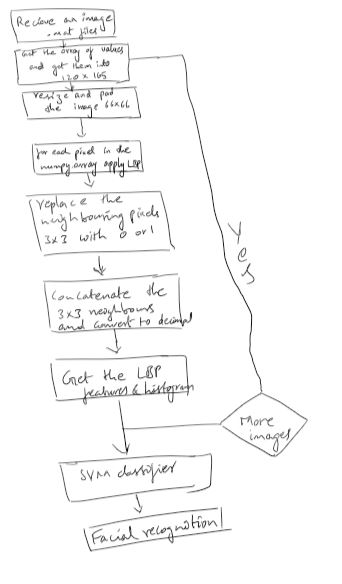 Recieve an image
.mat files
Get the array of values
and get them into
120 x 165
resize and pad
the image 66x66
for each pixel in the
numpy.array apply LBP
replace the
neighbouring pixels
3x3 with 0 or 1
Yes
Concatenate the
3x3 neighbours
and convert to decimal
Get the LBP
features & histogram
More
images
SVM classifier
Facial recognition